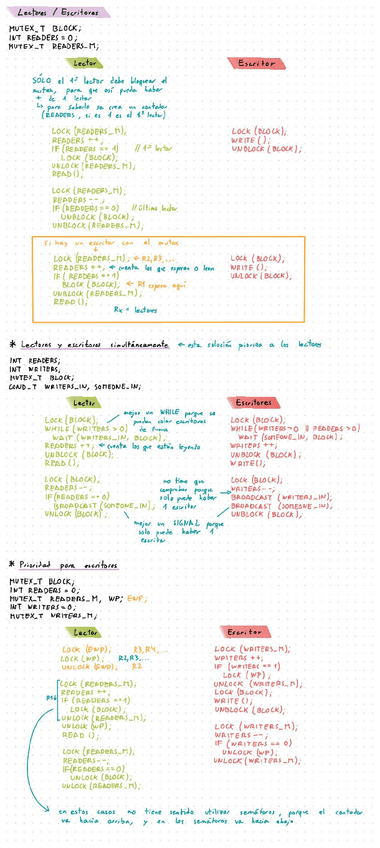 Lectores / Escritores
MUTEX_T BLOCK;
INT READERS = 0;
MUTEX_T READERS_M;
Lector
SÓLO el 1º lector debe bloquear el
mutex, para que así pueda haber
+ de 1 lector
↳ para saberlo se crea un contador
(READERS, si es 1 es el 1º lector)
LOCK (READERS_M);
READERS ++;
IF (READERS == 1) // 1º lector
LOCK (BLOCK);
UNLOCK (READERS_M);
READ ();
LOCK (READERS_M);
READERS --;
IF (READERS == 0) // último lector
UNBLOCK (BLOCK);
UNBLOCK (READERS_M);
Escritor
LOCK (BLOCK);
WRITE ();
UNBLOCK (BLOCK);
si hay un escritor con el mutex
LOCK (READERS_M); ← R2, R3, ...
READERS ++; ← cuenta los que esperan o leen
IF ( READERS == 1)
BLOCK (BLOCK); ← R1 espera aquí
UNBLOCK (READERS_M);
READ ();
Rx = lectores
LOCK (BLOCK);
WRITE ();
UNLOCK (BLOCK);
* Lectores y escritores simultáneamente ← esta solución prioriza a los lectores
INT READERS;
INT WRITERS;
MUTEX_T BLOCK;
COND_T WRITERS_IN, SOMEONE_IN;
Lector
LOCK (BLOCK);
WHILE (WRITERS > 0)
WAIT (WRITERS_IN, BLOCK);
READERS ++; ← cuenta los que están leyendo
UNBLOCK (BLOCK);
READ ();
mejor un WHILE porque se
pueden colar escritores
de nuevo
LOCK (BLOCK);
READERS --;
IF (READERS == 0)
BROADCAST (SOMEONE_IN);
UNLOCK (BLOCK);
no tiene que
comprobar porque
solo puede haber
1 escritor
mejor un SIGNAL porque
solo puede haber 1
escritor
Escritores
LOCK (BLOCK);
WHILE (WRITERS > 0 || READERS > 0)
WAIT (SOMEONE_IN, BLOCK);
WRITERS ++;
UNBLOCK (BLOCK);
WRITE();
LOCK (BLOCK);
WRITERS --;
BROADCAST (WRITERS_IN);
BROADCAST (SOMEONE_IN);
UNBLOCK (BLOCK);
* Prioridad para escritores
MUTEX_T BLOCK;
INT READERS = 0;
MUTEX_T READERS_M, WP;
INT WRITERS = 0;
MUTEX_T WRITERS_M;
Lector
R3, R4, ...
LOCK (WP); R2, R3, ...
R2
LOCK (READERS_M);
READERS ++;
IF (READERS == 1)
LOCK (BLOCK);
UNLOCK (READERS_M);
UNLOCK (WP);
READ ();
LOCK (READERS_M);
READERS --;
IF (READERS == 0)
UNLOCK (BLOCK);
UNLOCK (READERS_M);
Escritor
LOCK (WRITERS_M);
WRITERS ++;
IF (WRITERS == 1)
LOCK (WP);
UNLOCK (WRITERS_M);
LOCK (BLOCK);
WRITE ();
UNBLOCK (BLOCK);
LOCK (WRITERS_M);
WRITERS --;
IF (WRITERS == 0)
UNLOCK (WP);
UNLOCK (WRITERS_M);
en estos casos no tiene sentido utilizar semáforos, porque el contador
va hacia arriba, y en los semáforos va hacia abajo